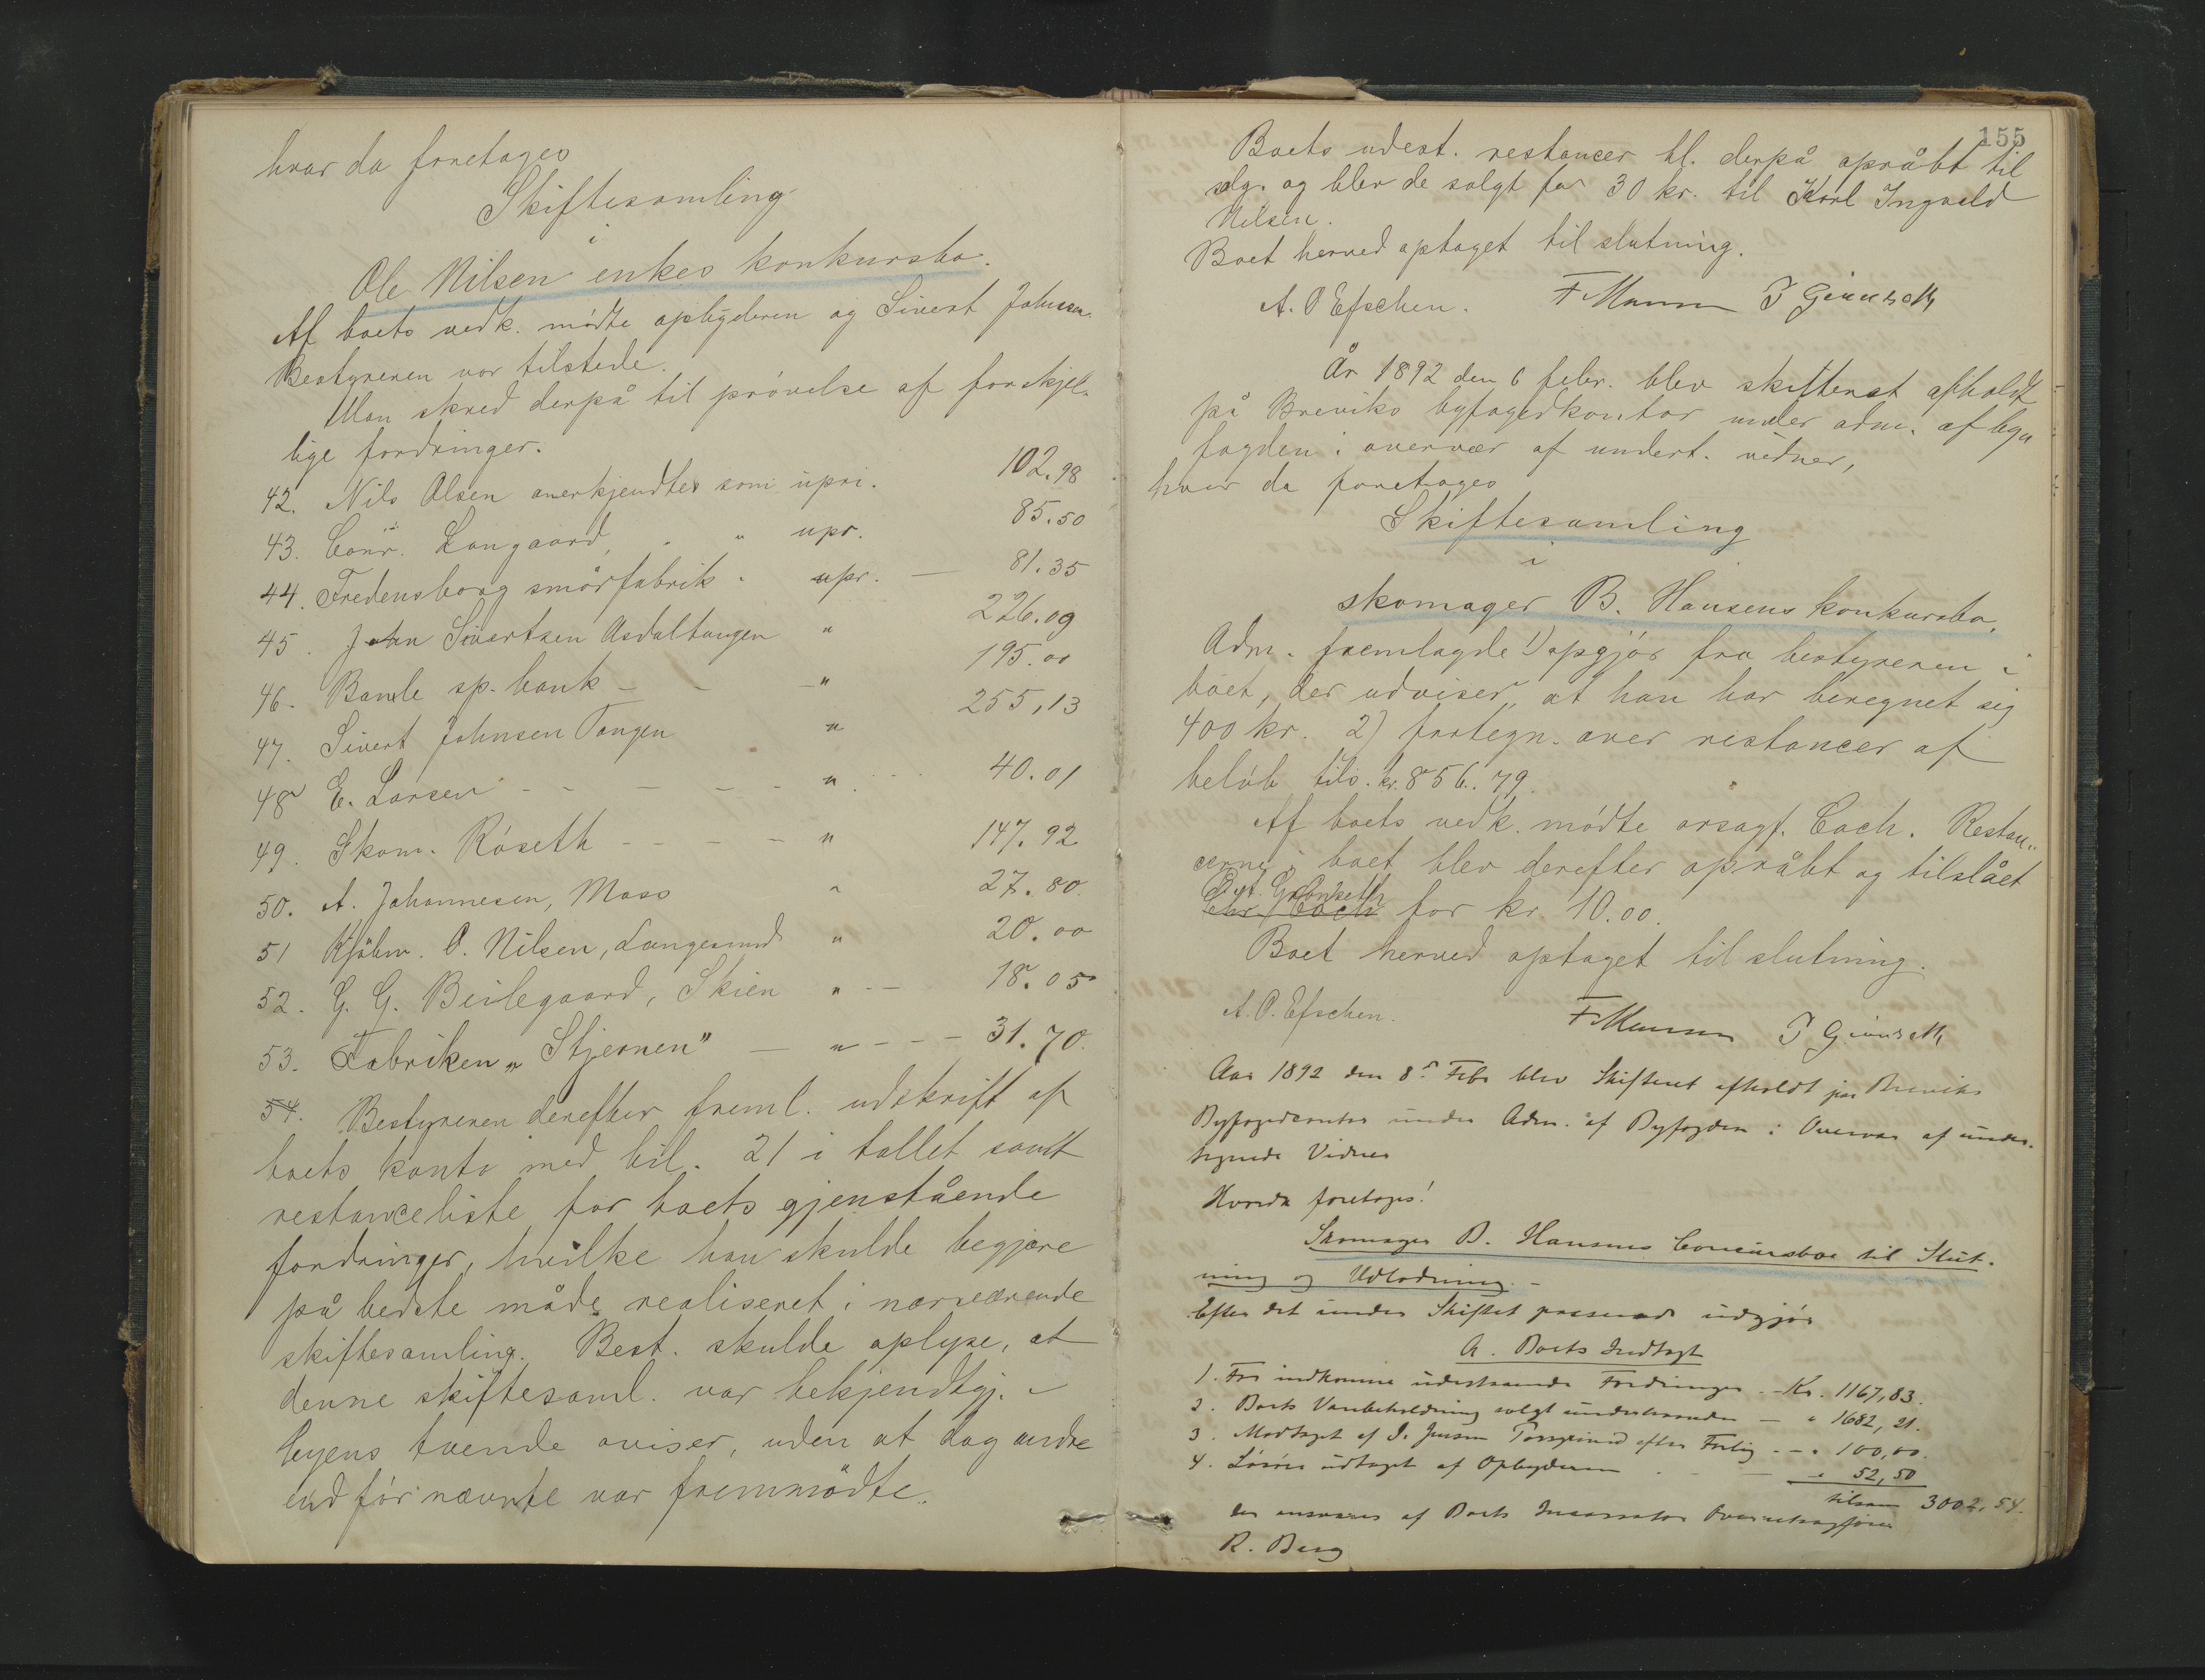 hvor da foretoges
Skiftesamling
i
Ole Nilsen enkes konkursbo.
Af boets vedk. mødte opbyderen og Sivert Johnsen.
Bestyreren var tilstede.
Man skred derpå til prøvelse af forskjel-
lige fordringer.
42. Nils Olsen anerkjendtes som upri. 102.98
43. Conr. Langaard, " " upr. 85.50
44. Fredensborg smørfabrik " upr. — 81.35
45. John Sivertsen Asdaltangen " 226.09
46. Bamle sp. bank - - - " 195.00
47. Sivert Johnsen Tangen " 255,13
48 E. Larsen - - - - - " 40.01
49. Skom. Røseth - - - - " 147.92
50. A. Johannesen, Moss " 27.80.
51 Kjøbm. O. Nilsen, Langesund " 20.00
52. G. G. Beilegaard, Skien " - - 18.05
53. Fabriken „Stjernen" — " - - - 31.70.
54. Bestyreren derefter freml. udskrift af
boets konto med bil. 21 i tallet samt
restanceliste for boets gjenstående
fordringer, hvilke han skulde begjære
på bedste måde realiseret i nærværende
skiftesamling. Best. skulde oplyse, at
denne skiftesaml. var bekjendtgj. i
byens tvende aviser, uden at dog andre
end før nævnte var fremmødte.
155
Boets udest. restancer bl. derpå opråbt til
slg. og blev de solgt for 30 kr. til Karl Ingvald
Nilsen.
Boet herved optaget til slutning.
A. O Efschen. F Munn P Grønseth
År 1892 den 6 febr. blev skifteret afholdt
på Breviks byfogedkontor under adm. af by„
fogden i overvær af undert. vidner,
hvor da foretoges
Skiftesamling
i
skomager B. Hansens konkursbo.
Adm. fremlagde 1) opgjør fra bestyreren i
boet, der udviser, at han har beregnet sig
400 kr. 2) fortegn. over restancer af
beløb tils. kr. 856.79.
Af boets vedk. mødte orsagf. Coch. Restan„
cerne i boet blev derefter opråbt og tilslået
Grønseth
Chr. Coch for kr. 10.00.
Boet herved optaget til slutning.
A. O. Efschen. F Munn P Grønseth
Aar 1892 den 8de Febr blev Skifteret afholdt paa Breviks
Byfogedcontor under Adm. af Byfogden i Overvær af under-
tegnede Vidner
Hvorda foretoges!
Skomager B. Hansens Concursboe til Slut-
ning og Udlodning. -
Efter det under Skiftet passerede udgjør
A. Boets Indtægt
1. For indkomne udestaaende Fordringer .- Kr. 1167,83.
2. Boets Varebeholdning solgt underhaanden — " 1682,21.
3. Modtaget af J. Jensen efter Forlig - - " 100,00.
4. Løsøre udtaget af Opbyderen - — " 52,50
tilsam 3002,54.
der ansvares af Boets Incassator Overretssagfører
R. Berg